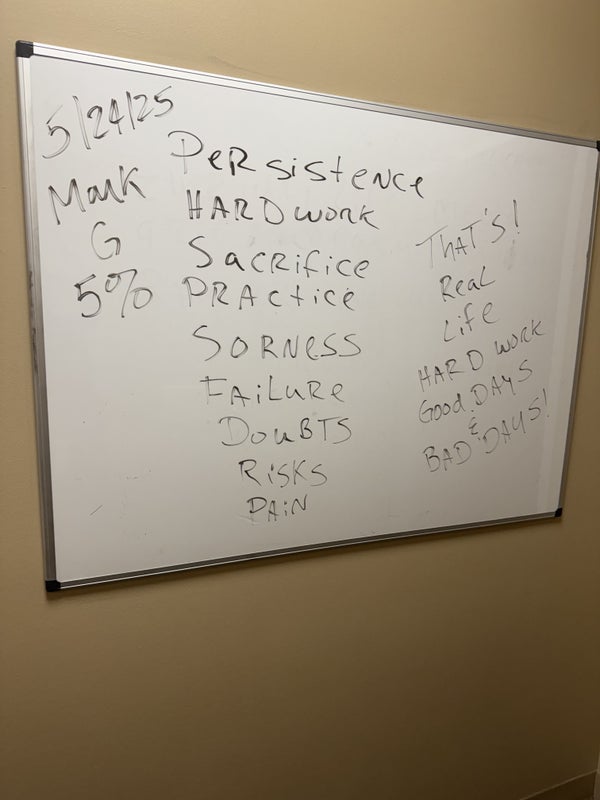 5/24/25
Mark
G
5%
PeRsistence
HARDwoRk
SacRifice
PRActice
SoRNess
FAiLuRe
DouBTS
RiSKS
PAiN
THAT'S!
ReaL
Life
HARD woRk
Good DAYS
&
BAD DAYS!